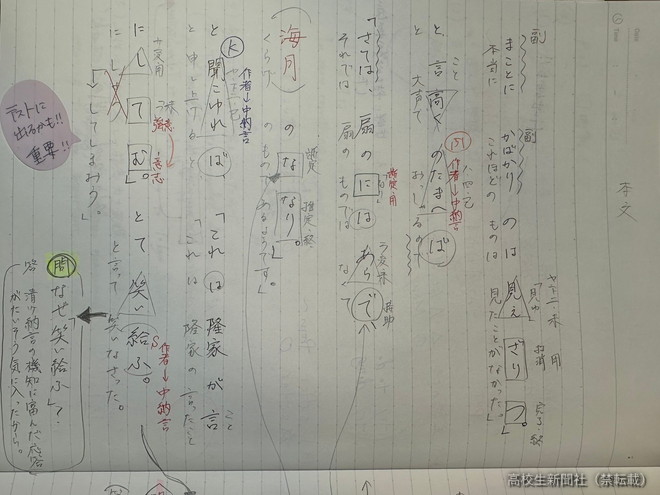 本文
ヤ下二・未 用
「見ゆ」 打消 完了・終
副 副
まことに かばかり の は 見え ざり つ。」
本当に これほどの ものは 見たことがなかった。」
こと
と、言高く のたまへ ば
と 大声で おっしゃるので
作者→中納言
断定・用 ラ変・未 接助
「さては、扇の に は あら で
それでは 扇の ものでは なくて
断定 推定・終
海月 の な なり。」
くらげ のもので あるようです。」
作者→中納言
K
と 聞こゆれ ば 「これ は 隆家 が 言
と 申し上げると 「これは 隆家の 言ったこと
こと
サ変・用 強意 意志
に し て む。」 とて 笑い 給ふ。
に してしまおう。」 と言って 笑いなさった。
S 作者→中納言
テストに
出るかも!!
重要!!
問 なぜ「笑い給ふ」?
答 清少納言の機知に富んだ応答
がたいそう気に入ったから。
高校生新聞社（禁転載）